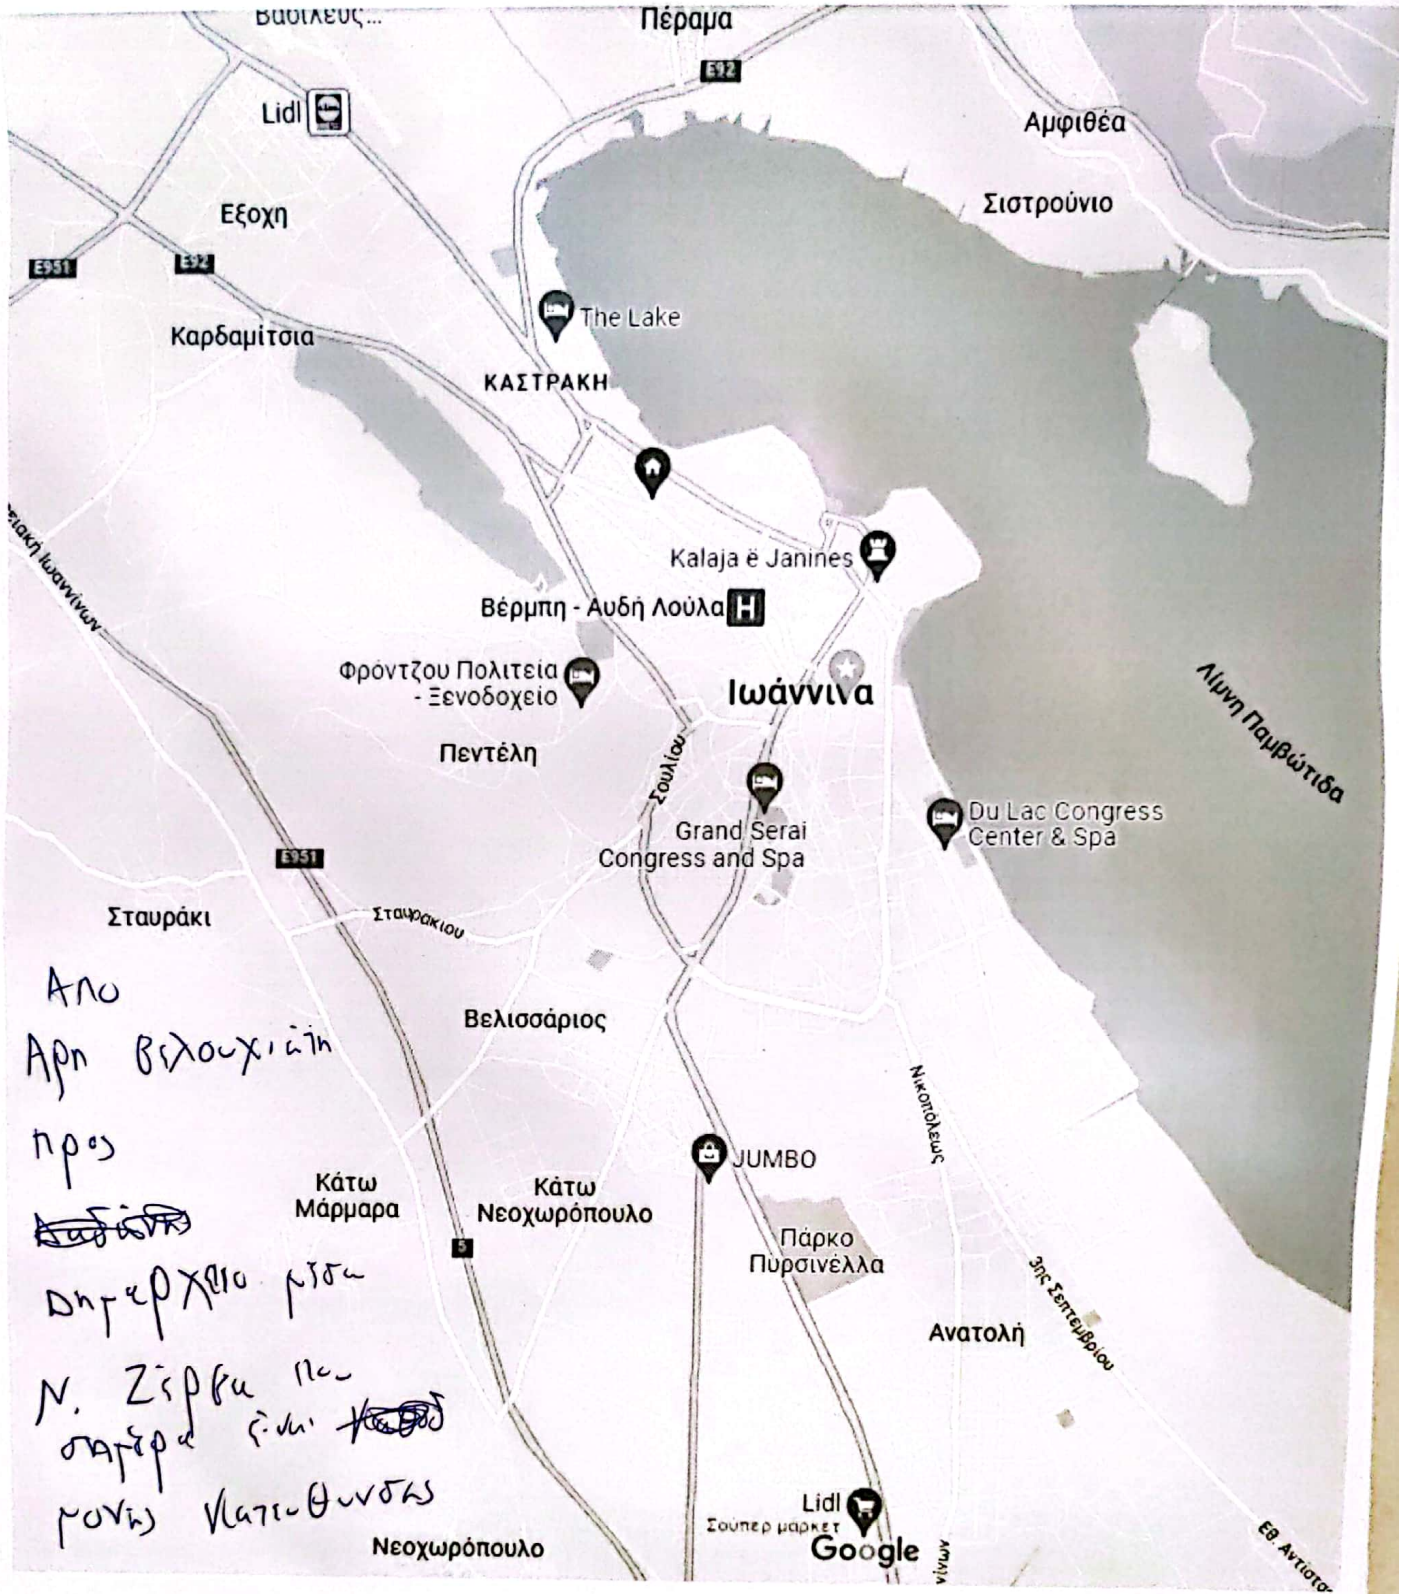 Βασιλεύς...
Πέραμα
E92
Lidl
Αμφιθέα
Σιστρούνιο
Εξοχη
E951
E92
The Lake
Καρδαμίτσια
ΚΑΣΤΡΑΚΗ
Ιωαννίνων
Kalaja ë Janinës
Βέρμπη - Αυδή Λούλα H
Φρόντζου Πολιτεία
- Ξενοδοχείο
Ιωάννινα
Λίμνη Παμβώτιδα
Πεντέλη
Σουλίου
Grand Serai
Congress and Spa
Du Lac Congress
Center & Spa
E951
Σταυράκι
Σταυρακιου
Βελισσάριος
Νικοπόλεως
JUMBO
Κάτω
Μάρμαρα
Κάτω
Νεοχωρόπουλο
5
Πάρκο
Πυρσινέλλα
3ης Σεπτεμβρίου
Ανατολή
Lidl
Σούπερ μάρκετ
Google
Νεοχωρόπουλο
Εθ. Αντίστα
Απο
Αρη βελουχιώτη
προς
Δημαρχειο μέσω
Ν. Ζέρβα που
σημερα είναι
μονής κατευθυνσης